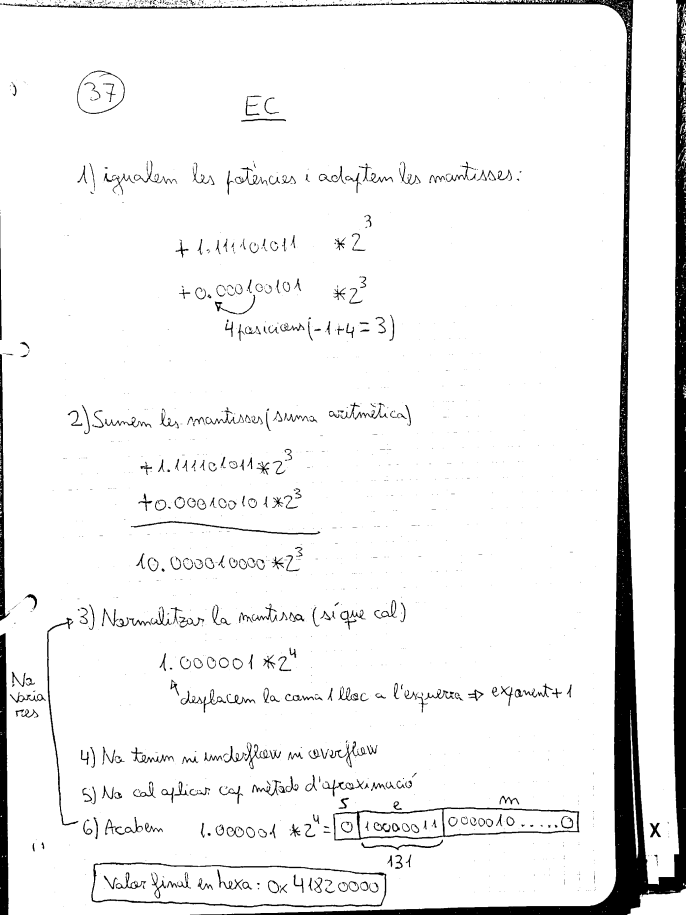 37
EC
1) igualem les potències i adaptem les mantisses:
+1.111101011 *2^3
+0.000100101 *2^3
4 posicions (-1+4=3)
2) Sumem les mantisses (suma aritmètica)
+1.111101011*2^3
+0.000100101*2^3
10.000010000*2^3
3) Normalitzar la mantissa (sí que cal)
1.000001 *2^4
desplacem la coma 1 lloc a l'esquerra ⇒ exponent+1
No
varia
res
4) No tenim ni underflow ni overflow
5) No cal aplicar cap mètode d'aproximació
s e m
6) Acabem 1.000001 *2^4 = 0 10000011 0000010.....0
131
Valor final en hexa: 0x41820000